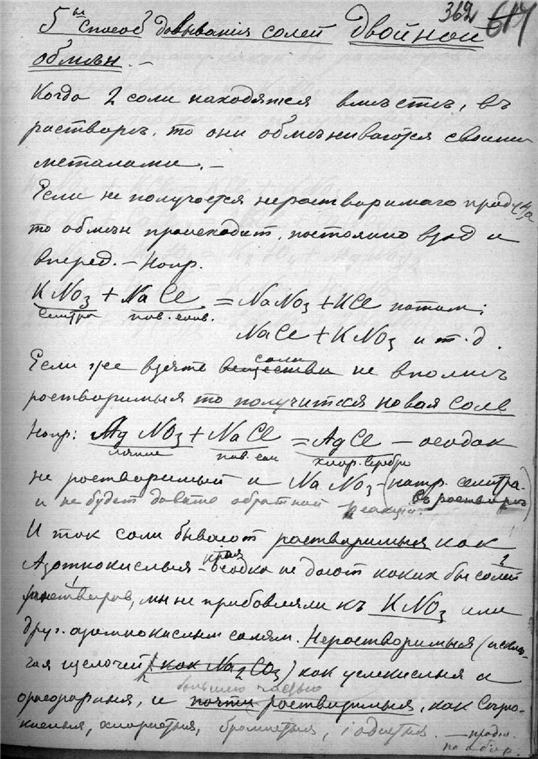 369 614
5й способ добыванія солей двойной
обмѣн. —
Когда 2 соли находятся вмѣстѣ, въ
растворѣ. то они обмѣниваются своими
металами. —
Если не получается нерастворимаго продукта
то обмѣн происходит, постоянно взад и
вперед. — Напр.
KNO₃ + NaCl = NaNO₃ + KCl потом;
селитра пов. соль.
NaCl + KNO₃ и т. д.
Если же взять вещества соли не вполнѣ
растворимыя то получится новая соль
Напр: AgNO₃ + NaCl = AgCl — осадок
ляпис пов. сол хлор. серебро
не растворимый и NaNO₃ — (натр. селитра.
и не будет давать обратной реакции. въ растворѣ)
И так соли бывают растворимыя как
Азотнокислыя — осадка не дают каких бы солей
растворов, мы не прибовляли къ KNO₃ или
друг. азотнокислым солям. Нерастворимыя (исклю-
чая щелочей, как Na₂CO₃) как углекислыя и
большею частью
фосфорныя, и почти растворимыя, как Серно-
кислыя, хлористыя, бромистыя, іодистыя. —